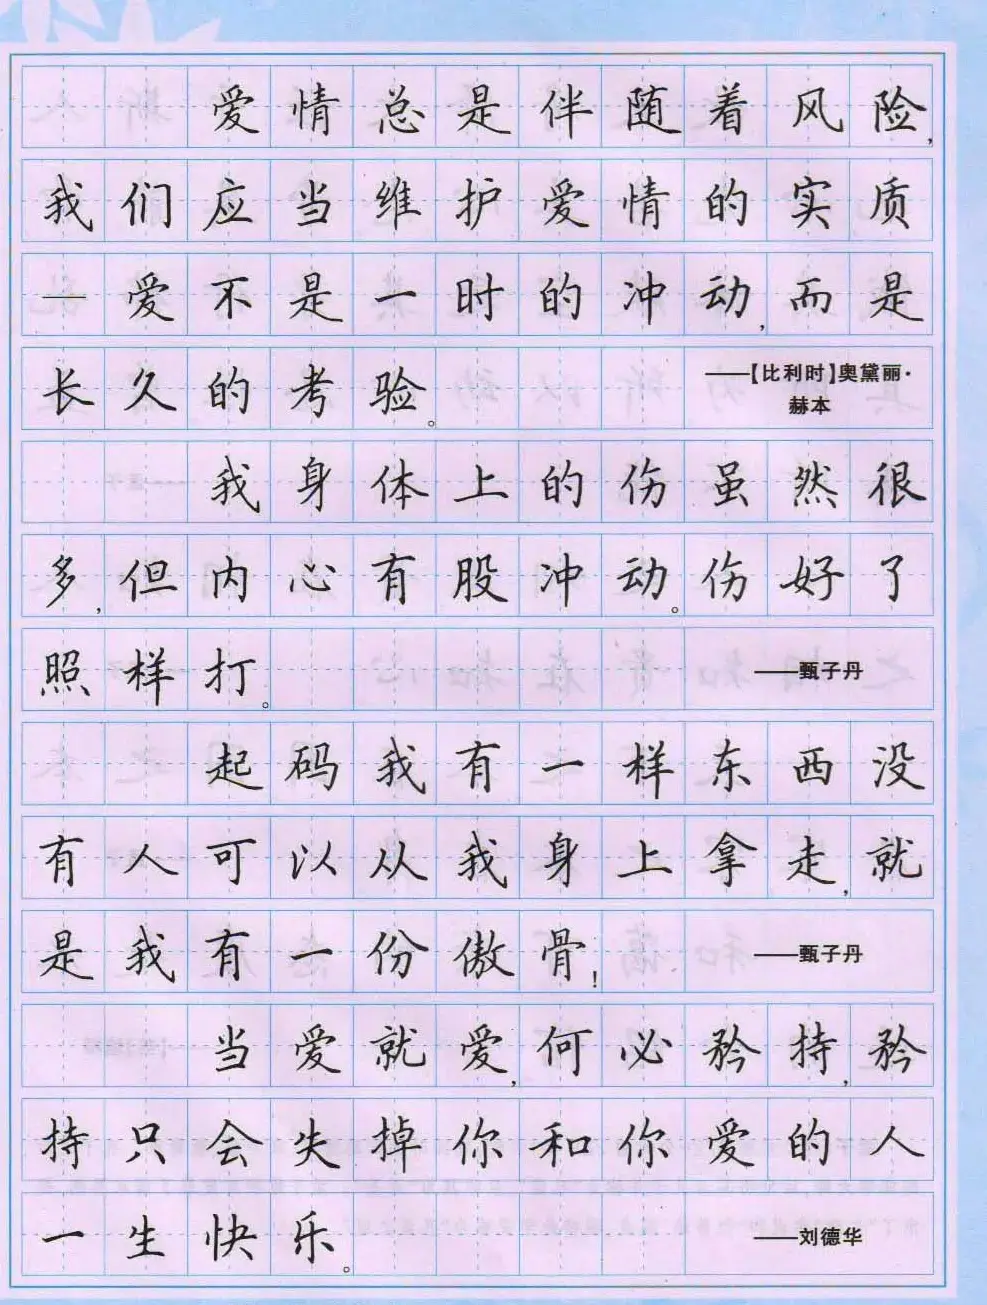 爱情总是伴随着风险,
我们应当维护爱情的实质
—爱不是一时的冲动,而是
长久的考验。
——【比利时】奥黛丽·
赫本
我身体上的伤虽然很
多,但内心有股冲动。伤好了
照样打。
——甄子丹
起码我有一样东西没
有人可以从我身上拿走,就
是我有一份傲骨!
——甄子丹
当爱就爱,何必矜持,矜
持只会失掉你和你爱的人
一生快乐。
——刘德华